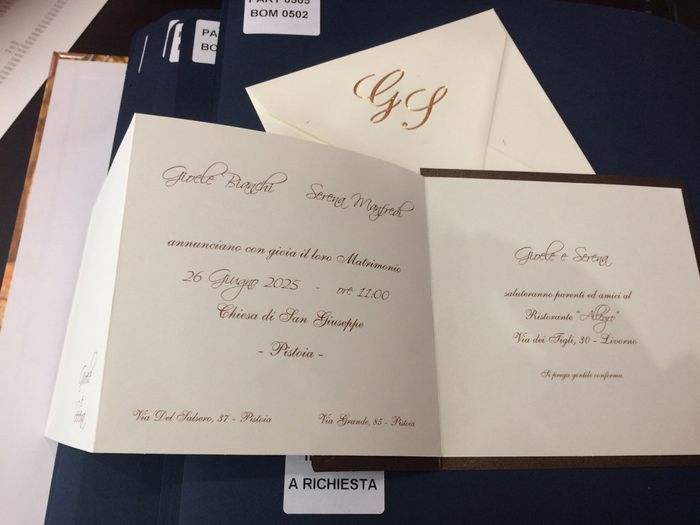 PART 0505
BOM 0502
PA
BO
GS
Gioele Bianchi
Serena Manfredi
annunciano con gioia il loro Matrimonio
26 Giugno 2025 - ore 11:00
Chiesa di San Giuseppe
- Pistoia -
Via Del Salsero, 37 - Pistoia
Via Grande, 85 - Pistoia
Gioele e Serena
saluteranno parenti ed amici al
Ristorante "Allegro"
Via dei Tigli, 30 - Livorno
Si prega gentile conferma
A RICHIESTA